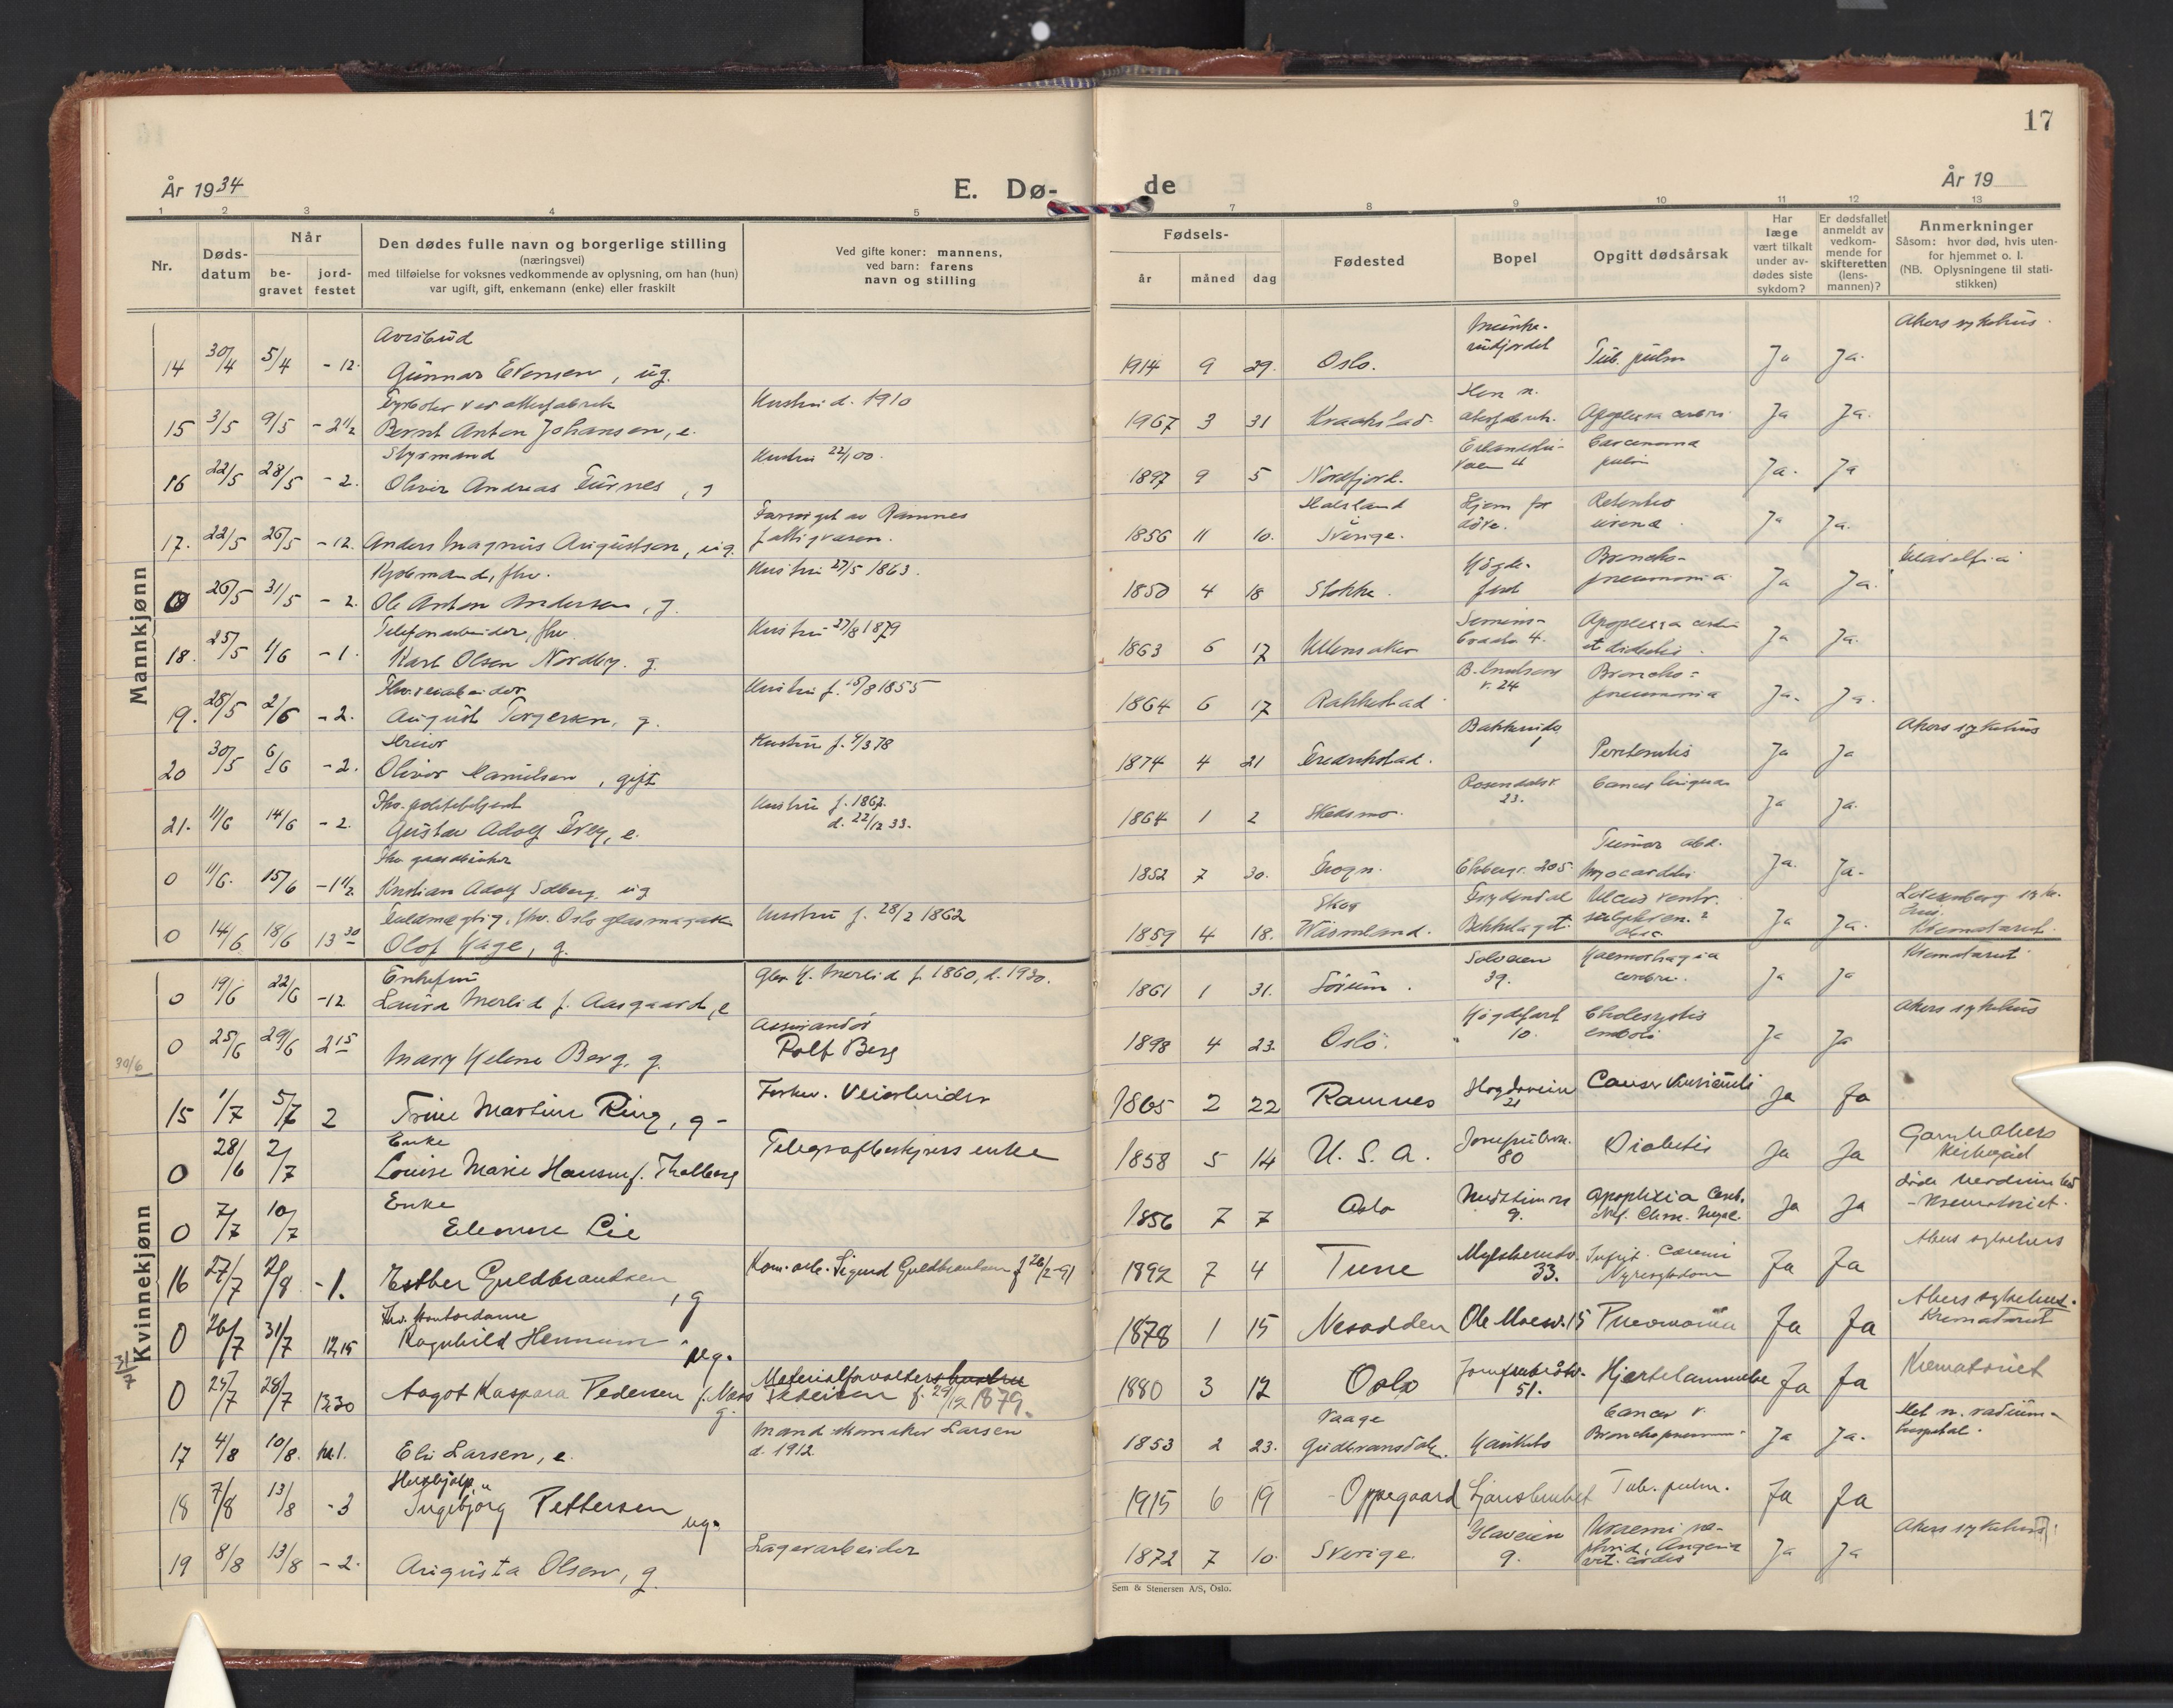 17
År 1934
E. Dø-
de
År 19
1 2 3 4 5 7 8 9 10 11 12 13
Nr.
Døds-
datum
Når
be-
gravet
jord-
festet
Den dødes fulle navn og borgerlige stilling
(næringsvei)
med tilføielse for voksnes vedkommende av oplysning, om han (hun)
var ugift, gift, enkemann (enke) eller fraskilt
Ved gifte koner: mannens,
ved barn: farens
navn og stilling
Fødsels-
år
måned
dag
Fødested
Bopel
Opgitt dødsårsak
Har
læge
vært tilkalt
under av-
dødes siste
sykdom?
Er dødsfallet
anmeldt av
vedkom-
mende for
skifteretten
(lens-
mannen)?
Anmerkninger
Såsom: hvor død, hvis uten-
for hjemmet o. l.
(NB. Oplysningene til stati-
stikken)
Mannkjønn
Avisbud Akers sykehus.
14 30/4 5/4 - 12. Gunnar Evensen, ug. 1914 9 29. Oslo. Tub. pulm Ja Ja.
Hustru d. 1910
15 3/5 9/5 - 2 1/2 Bernt Anton Johansen, e. 1967 3 31 Kraakstad. Apoplexia cerebri Ja Ja.
Styrmand Hustru 22/1 00. Carcinoma
16 22/5 28/5 - 2. Oliver Andreas Furnes, g 1897 9 5 Nordfjord. Ja. Ja
Forsørget av Ramnes Hjem for Retentio
17. 22/5 26/5 - 12. Anders Magnus Augustsen, ug. fattigvæsen. 1856 11 10. Sverige. døve. urinæ. Ja Ja.
Kjøbmand, fhv. Hustru 27/5 1863. Broncho-
0 26/5 31/5 - 2. Ole Anton Andersen, g. 1850 4 18 Stokke. pneumonia Ja Ja.
Telefonarbeider, fhv. Hustru 27/8 1879 Apoplexia cerebri
18. 25/5 1/6 - 1. Karl Olsen Nordby. g. 1863 6 17 Ullensaker Ja Ja.
Fhv. veiarbeider Hustru f. 15/8 1855 Broncho-
19. 28/5 2/6 - 2. August Torgersen, g. 1864 6 17 Rakkestad v. 24 pneumonia Ja. Ja.
Hustru f. 4/3 78 Akers sykehus
20 30/5 6/6 - 2. Oliver Danielsen, gift 1874 4 21 Fredrikstad. Peritonitis Ja Ja
Fhv. politibetjent Hustru f. 1867. Rosendalsv. Cancer linguæ
21. 11/6 14/6 - 2. Gustav Adolf Frey, e. d. 22/12 33. 1864 1 2 Skedsmo. 23. Ja Ja.
Fhv. gaardbruker Tumor abd.
0 11/6. 15/6 - 1 1/2. Kristian Adolf Solberg, ug 1852 7 30. Frogn. Ekebergv. 205. Myocardit. Ja. Ja.
Fuldmægtig, fhv. Oslo glasmagasin Hustru f. 28/2 1862
0 14/6 18/6 13 30 Olof Hage, g. 1859 4 18. Värmland. Bekkelaget. Ja Ja. Krematoriet.
Enkefru Solveien Haemorhagia Krematoriet.
0 19/6 22/6 - 12 Laura Merlid f. Aasgaard, e f. 1860, d. 1930. 1861 1 31. Sørum. 39. cerebri. Ja Ja
Akers sykehus
0 25/6 29/6 2 15 Mary Helene Berg, g. Rolf Berg 1898 4 23. Oslo. 10. emboli Ja Ja
30/6
Kvinnekjønn
Forhv. Veiarbeider
15 1/7 5/7 2 Trine Martine Ring, g - 1865 2 22 Ramnes 21 Ja Ja
Enke Telegrafbestyrers enke
0 28/6 2/7 Louise Marie Hansen f. Thalberg 1858 5 14 U. S. A. 80 Diabetis Ja Ja
Enke
0 7/7 10/7 Eleonore Lie 1856 7 7 Oslo 9. Apoplexia Cereb. Ja Ja - Krematoriet.
Akers sykehus
16 27/7 2/8 - 1. Esther Guldbrandsen, g Kom. arb. Sigurd Guldbrandsen f 26/2-91 1892 7 4 Tune 33. Nyresykdom Ja Ja
Akers sykehus.
0 26/7 31/7 12,15 Ragnhild Hennum ug. 1878 1 15 Nesodden Ole Moesv. 15 Pneumonia Ja Ja Krematoriet
31/7
Materialforvalters hustru
0 25/7 28/7 13,30 Aagot Kaspara Pedersen f. Næss g. Pedersen f. 29/12 1879. 1880 3 12 Oslo 51. Hjertelammelse Ja Ja Krematoriet
Mand skomaker Larsen Vaage Cancer v.
17 4/8 10/8. kl. 1. Eli Larsen, e. d. 1912 1853 2 23. Gudbransdalen. Hauketo Ja Ja. hospital.
Hushjelp.
18 7/8 13/8 - 3 Ingebjørg Pettersen ug. 1915 6 19 Oppegaard Ljansbruket Tub. pulm. Ja Ja
Lagerarbeider Akers sykehus
19 8/8 13/8 - 2. Augusta Olsen, g. 1872 7 10. Sverige. 9. Ja Ja
Sem & Stenersen A/S, Oslo.